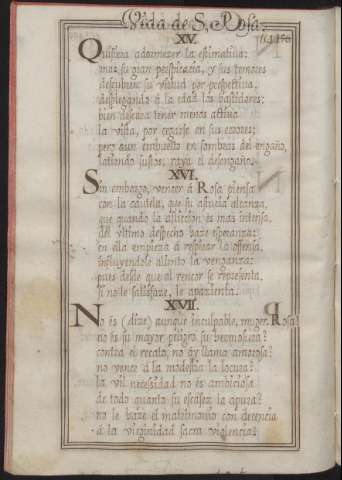 Vida de S. Rosa.
XV.
Quisiera adormezer la estimativa:
mas su gran perspicacia, y sus temores
descubren su virtud por perspectiva,
desplegando à la edad los bastidores:
bien deseara tener menos activa
la vista, por cegarse en sus errores;
pero aun embuelto en sombras del engaño,
latiendo sustos, raya el desengaño.
XVI.
Sin embargo, vencer à Rosa piensa
con la cautela, que su astucia alcanza,
que quando la afliccion es mas intensa,
del ultimo despecho haze esperanza:
en ella empieza à respirar la offensa,
influyendole aliento la venganza:
pues desde que al rencor se representa,
si no le satisfaze, le apacienta.
XVII.
No és (dize) aunque inculpable, muger Rosa?
no és su mayor peligro su hermosura?
contra el recato, no ay llama amorosa?
no vence à la modestia la locura?
la vil necessidad no és ambiciosa
de todo quanto su escasez la apura?
no le haze el matrimonio con decencia
à la virginidad sacra violencia?